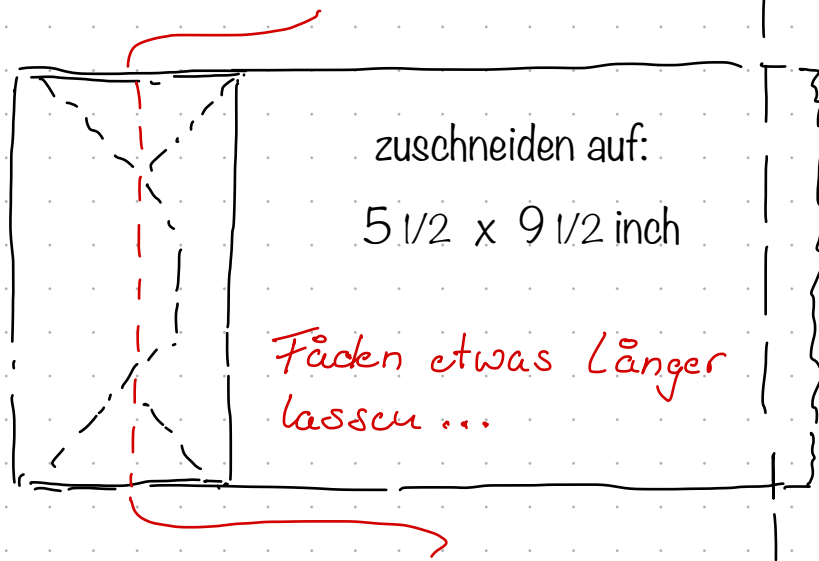 zuschneiden auf:
5 1/2 x 9 1/2 inch
Fäden etwas länger
lassen...